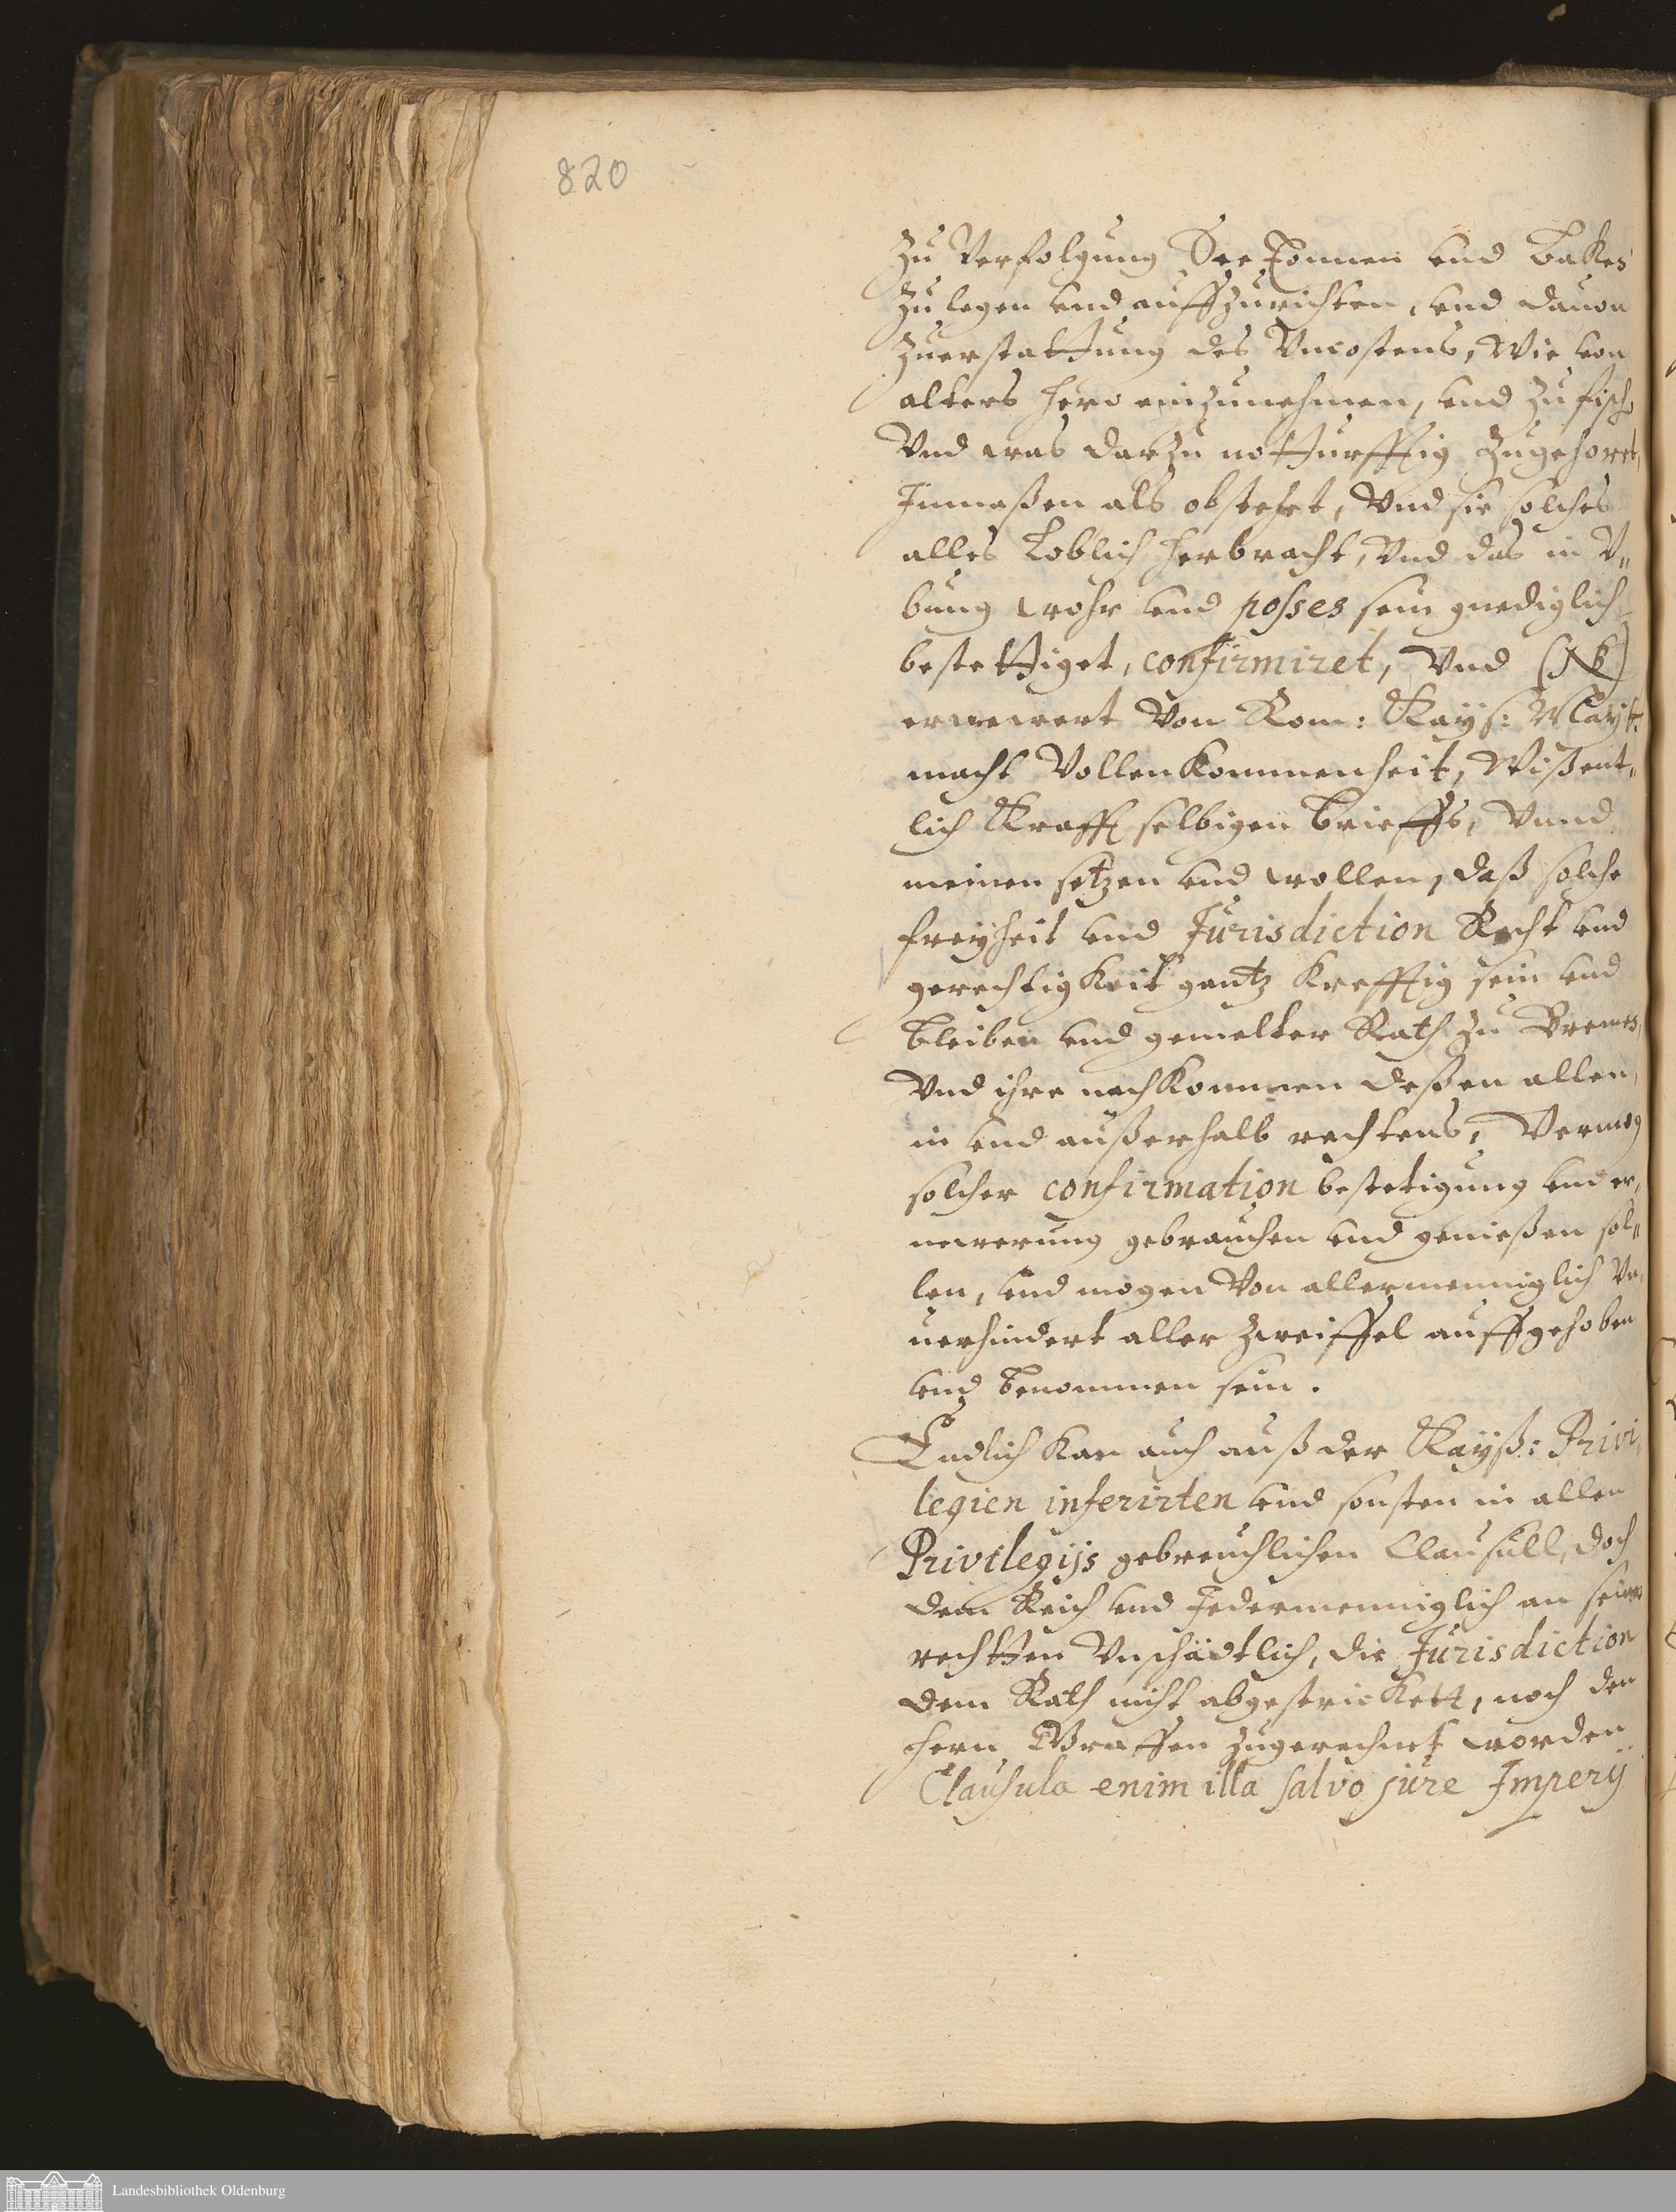 820
Zu Verfolgung See Tonnen und Bakes
Zu legen und auffzurichten, und dauon
Zuerstattung des Vncostens, Wie von
alters hero einzunehmen, und zu fisch
Vnd was darzu notturfftig zugehoret,
Inmaßen als obstehet, Vnd sie solches
alles Loblich herbracht, Vnd das in V„
bung wehr und posses sein gnediglich
bestettiget, confirmiret, Vnd (NB)
ernewert Von Rom: Kays: Mayt:
macht Vollenkommenheit, Wißent„
lich Krafft selbigen brieffs, Vnnd
meinen setzen und wollen, daß solche
freyheit und Jurisdiction Recht und
gerechtigkeit gantz krefftig sein und
bleiben und gemelter Rath zu Bremen,
Vnd ihre nachkommen deßen allen,
in und außerhalb rechtens, Vermog
solcher confirmation bestetigung und er„
newerung gebrauchen und genießen sol„
len, und mogen Von allermenniglich Vn„
uerhindert aller zweiffel auffgehoben
und benommen sein.
Endlich kan auch auß der Kayß: Privi„
legien inserirten und sonsten in allen
Privilegijs gebreuchlichen Clausull, doch
dem Reich und Jedermenniglich an seinen
rechtten Vnschädtlich, die Jurisdiction
dem Rath nicht abgestrickett, noch den
hern Graffen zugerechnet worden
Clausula enim illa salvo jure Imperij
Landesbibliothek Oldenburg